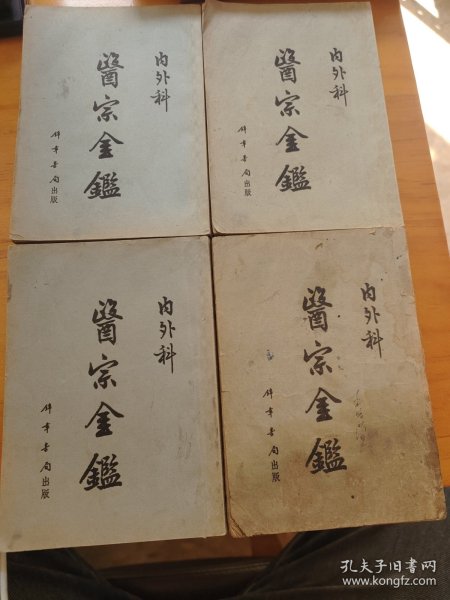 内外科
醫宗金鑑
錦章書局出版
内外科
醫宗金鑑
錦章書局出版
内外科
醫宗金鑑
錦章書局出版
内外科
醫宗金鑑
錦章書局出版
孔夫子旧书网
www.kongfz.com